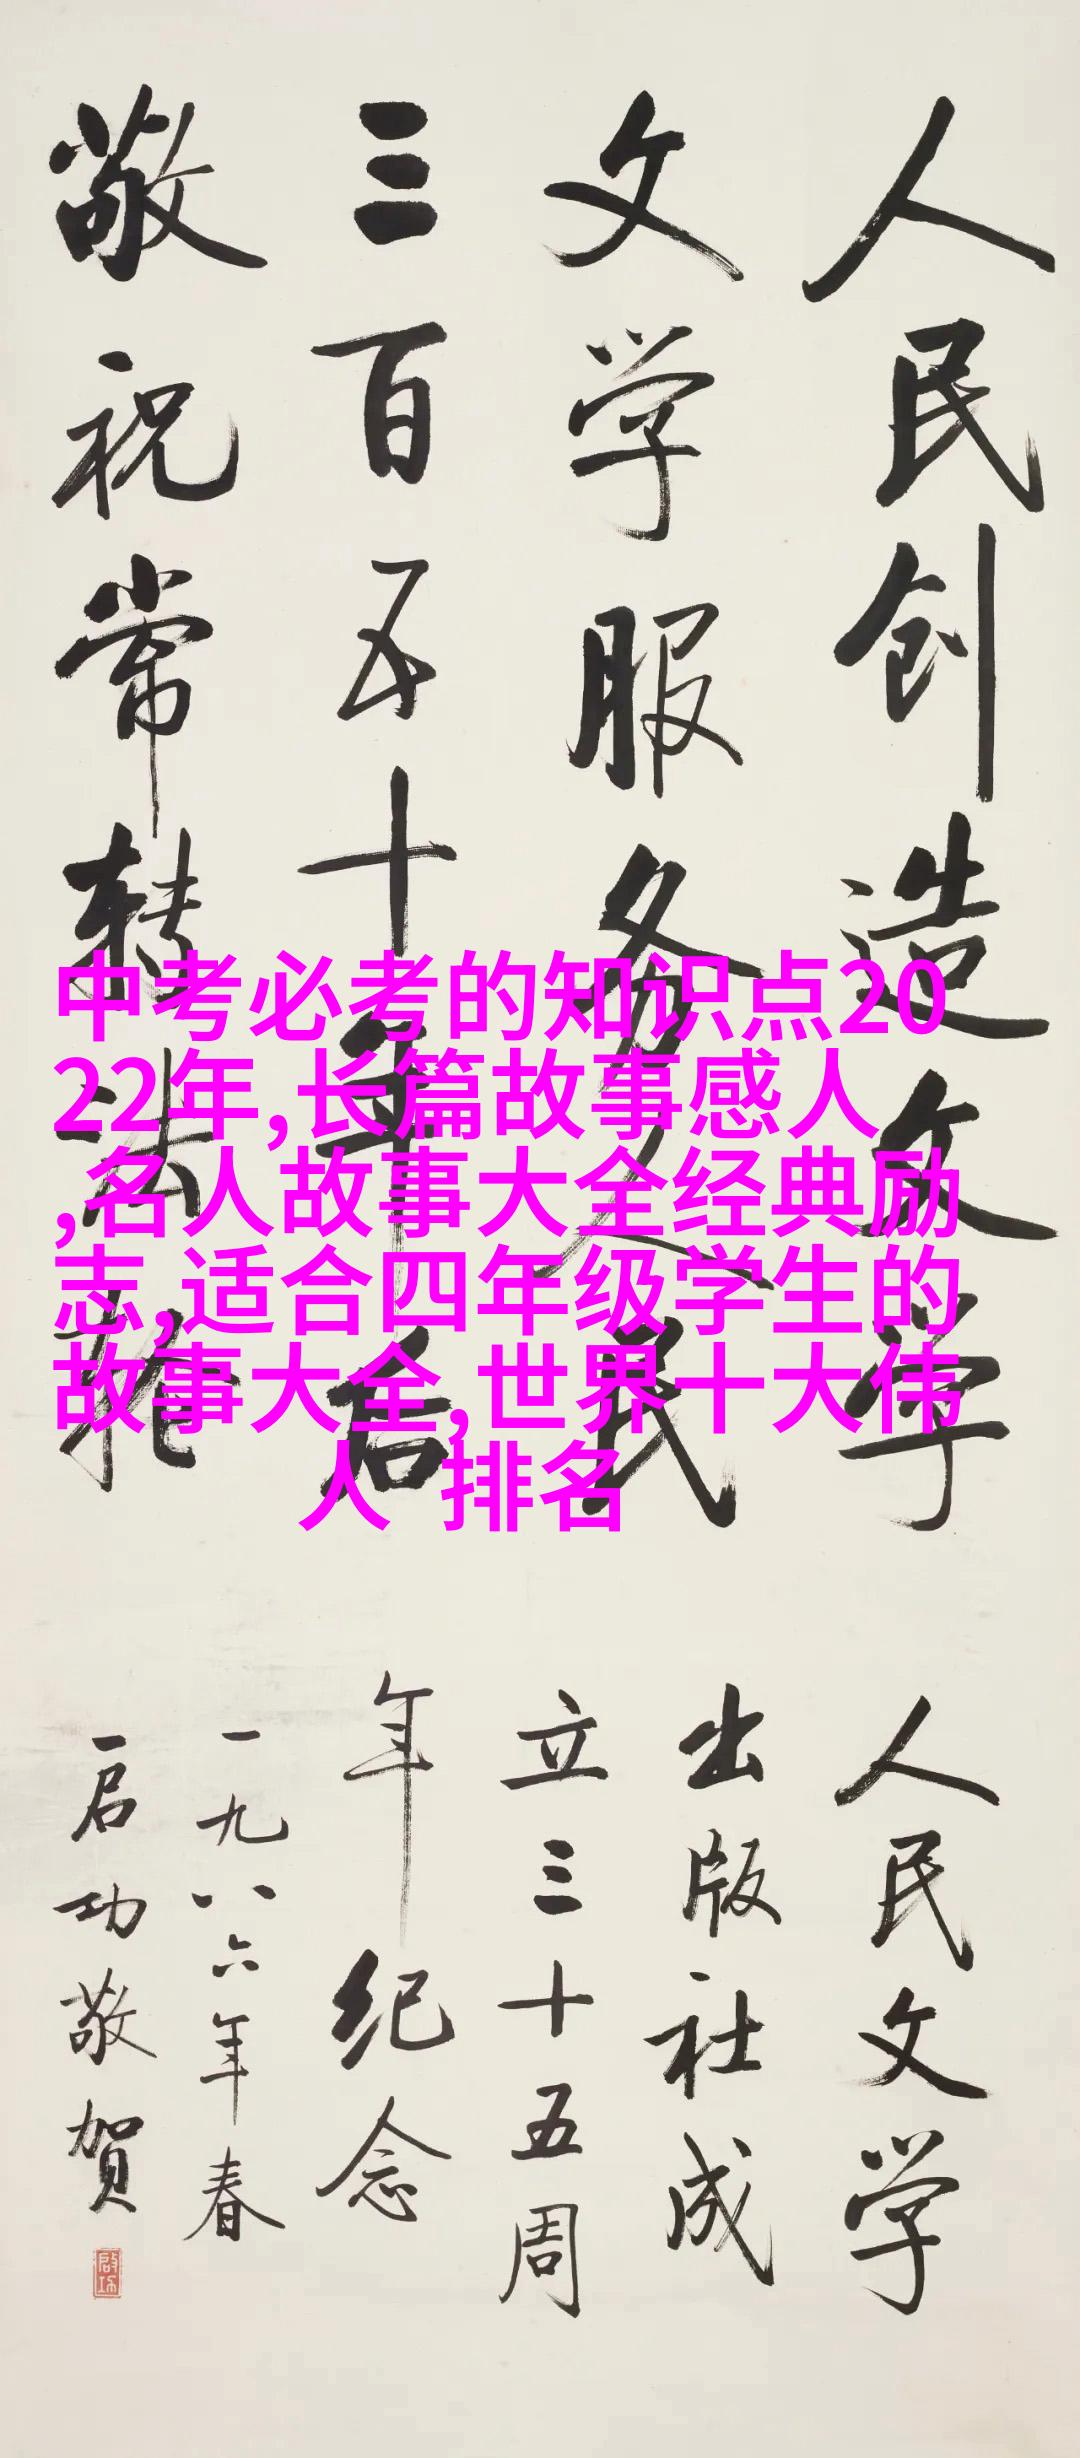 人民创造文学
文学服务人民
三百五十年后
敬祝常转法轮
人民文学
出版社成
立三十五周
年纪念
一九八六年春
启功敬贺
启功
中考必考的知识点20
22年,长篇故事感人
,名人故事大全经典励
志,适合四年级学生的
故事大全,世界十大伟
人 排名